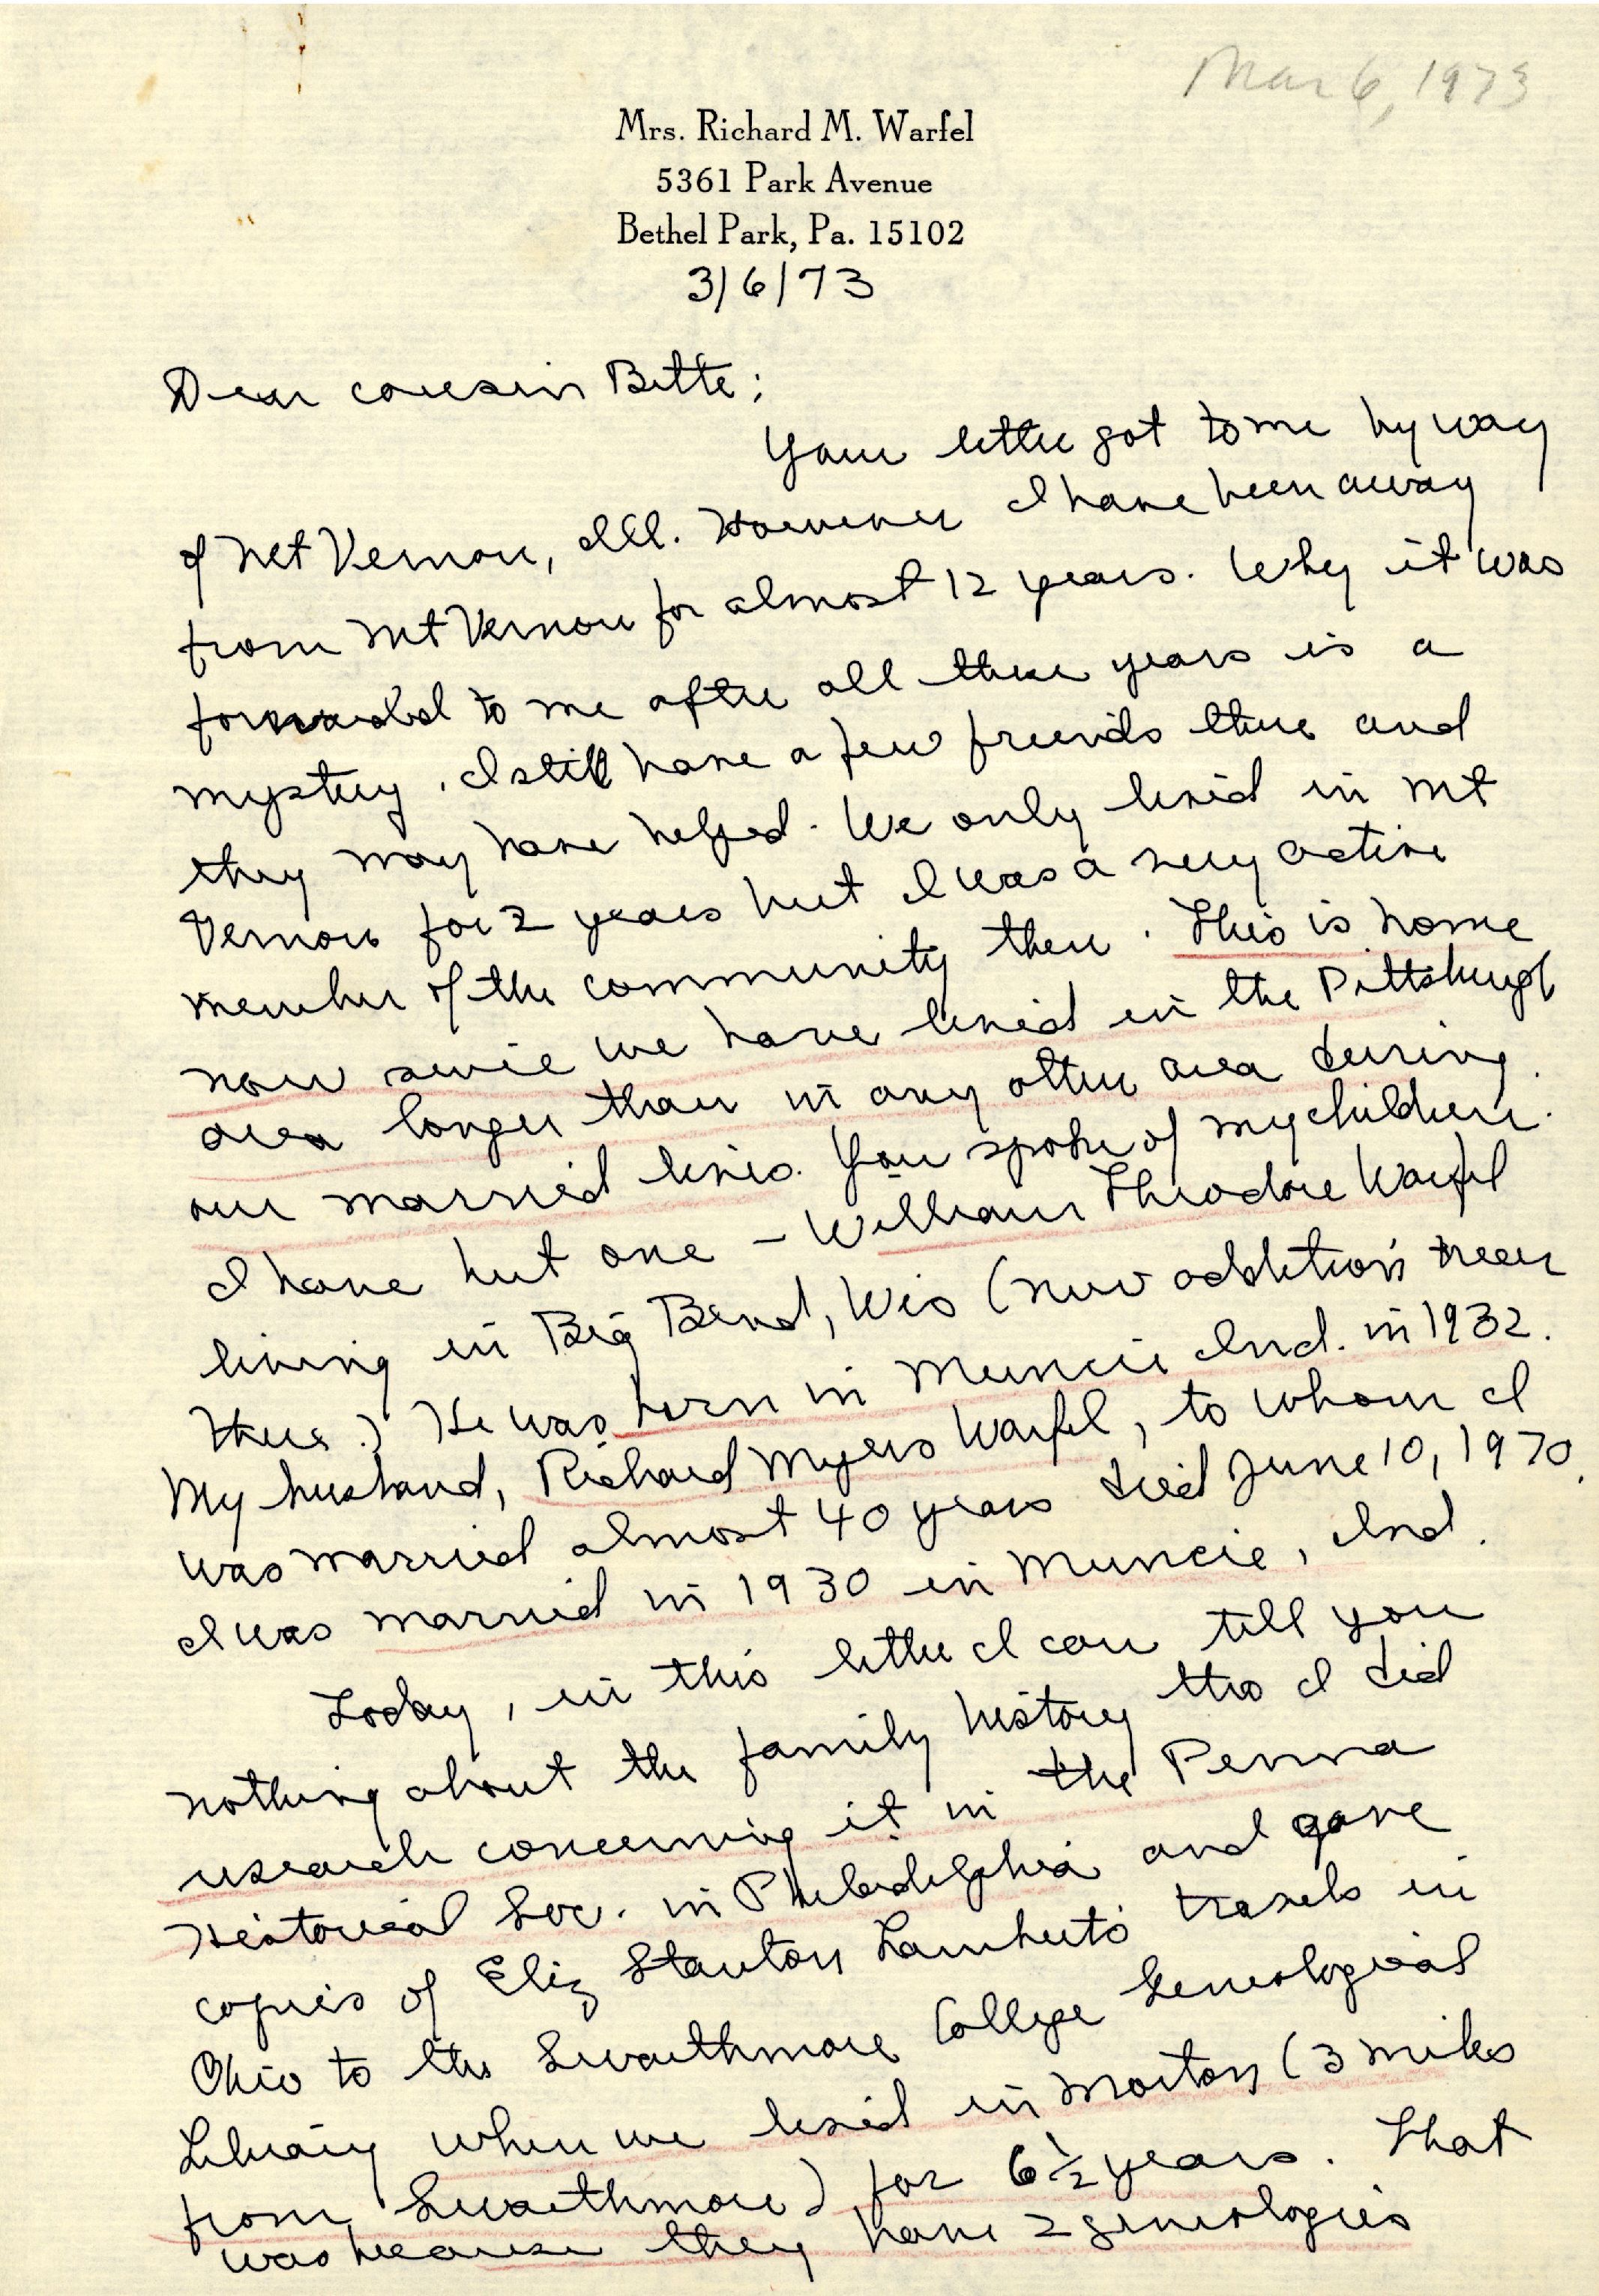 Mar 6, 1973
Mrs. Richard M. Warfel
5361 Park Avenue
Bethel Park, Pa. 15102
3/6/73
Dear cousin Bette;
Your letter got to me by way
of Mt Vernon, Ill. However I have been away
from Mt Vernon for almost 12 years. Why it was
forwarded to me after all these years is a
mystery. I still have a few friends there and
they may have helped. We only lived in Mt
Vernon for 2 years but I was a very active
member of the community then. This is home
now since we have lived in the Pittsburgh
area longer than in any other area during
our married lives. You spoke of my children.
I have but one - William Theodore Warfel
living in Big Bend, Wis (new addition near
there.) He was born in Muncie Ind. in 1932.
My husband, Richard Myers Warfel, to whom I
was married almost 40 years died June 10, 1970.
I was married in 1930 in Muncie, Ind.
Today, in this letter I can tell you
nothing about the family history tho I did
research concerning it in the Penna
Historical Soc. in Philadelphia and gave
copies of Eliz Stanton Lamberts' travels in
Ohio to the Swarthmore College Geneological
Library when we lived in Morton (3 miles
from Swarthmore) for 6½ years. That
was because they have 2 geneologies